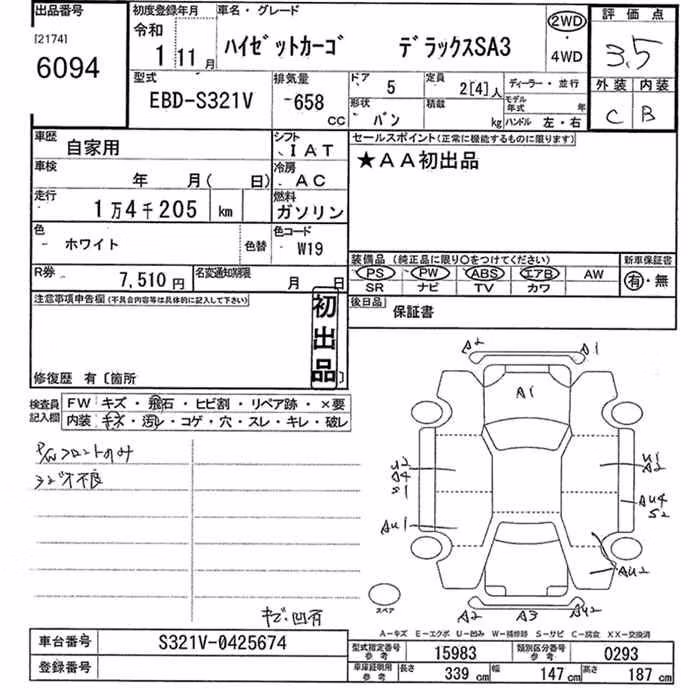 出品番号
[2174]
6094
初度登録年月
令和
1 11月
車名・グレード
ハイゼットカーゴ デラックスSA3
2WD
・
4WD
評価点
3.5
外装 内装
C B
型式
EBD-S321V
排気量
-658
CC
ドア 5
形状 バン
定員 2[4]人
積載 kg
ディーラー・並行
モデル年式 年
ハンドル 左・右
車歴 自家用
シフト IAT
車検 年 月( 日)
冷房 AC
走行 1万4千205 km
燃料 ガソリン
色 ホワイト
色替
色コード W19
R券 7,510円
名変通知期限 月 日
セールスポイント(正常に機能するものに限ります)
★AA初出品
装備品(純正品に限り○をつけてください)
新車保証書
PS PW ABS エアB AW
SR ナビ TV カワ
有・無
後日品 保証書
注意事項申告欄(不具合内容等は具体的に記入して下さい)
初出品
修復歴 有〔箇所 〕
検査員記入欄
FW キズ・飛石・ヒビ割・リペア跡・×要
内装 キズ・汚レ・コゲ・穴・スレ・キレ・破レ
P/Wフロントのみ
キズ、凹有
A2 A1
A1
U2
A4
S1
U1
A2
AU1
AU4
S2
AU2
A2 A3 AU2
スペア
A-キズ E-エクボ U-凹み W-補修跡 S-サビ C-腐食 XX-交換済
車台番号 S321V-0425674
登録番号
型式指定番号 参考 15983
類別区分番号 参考 0293
車庫証明用 参考 長さ 339 cm 幅 147 cm 高さ 187 cm